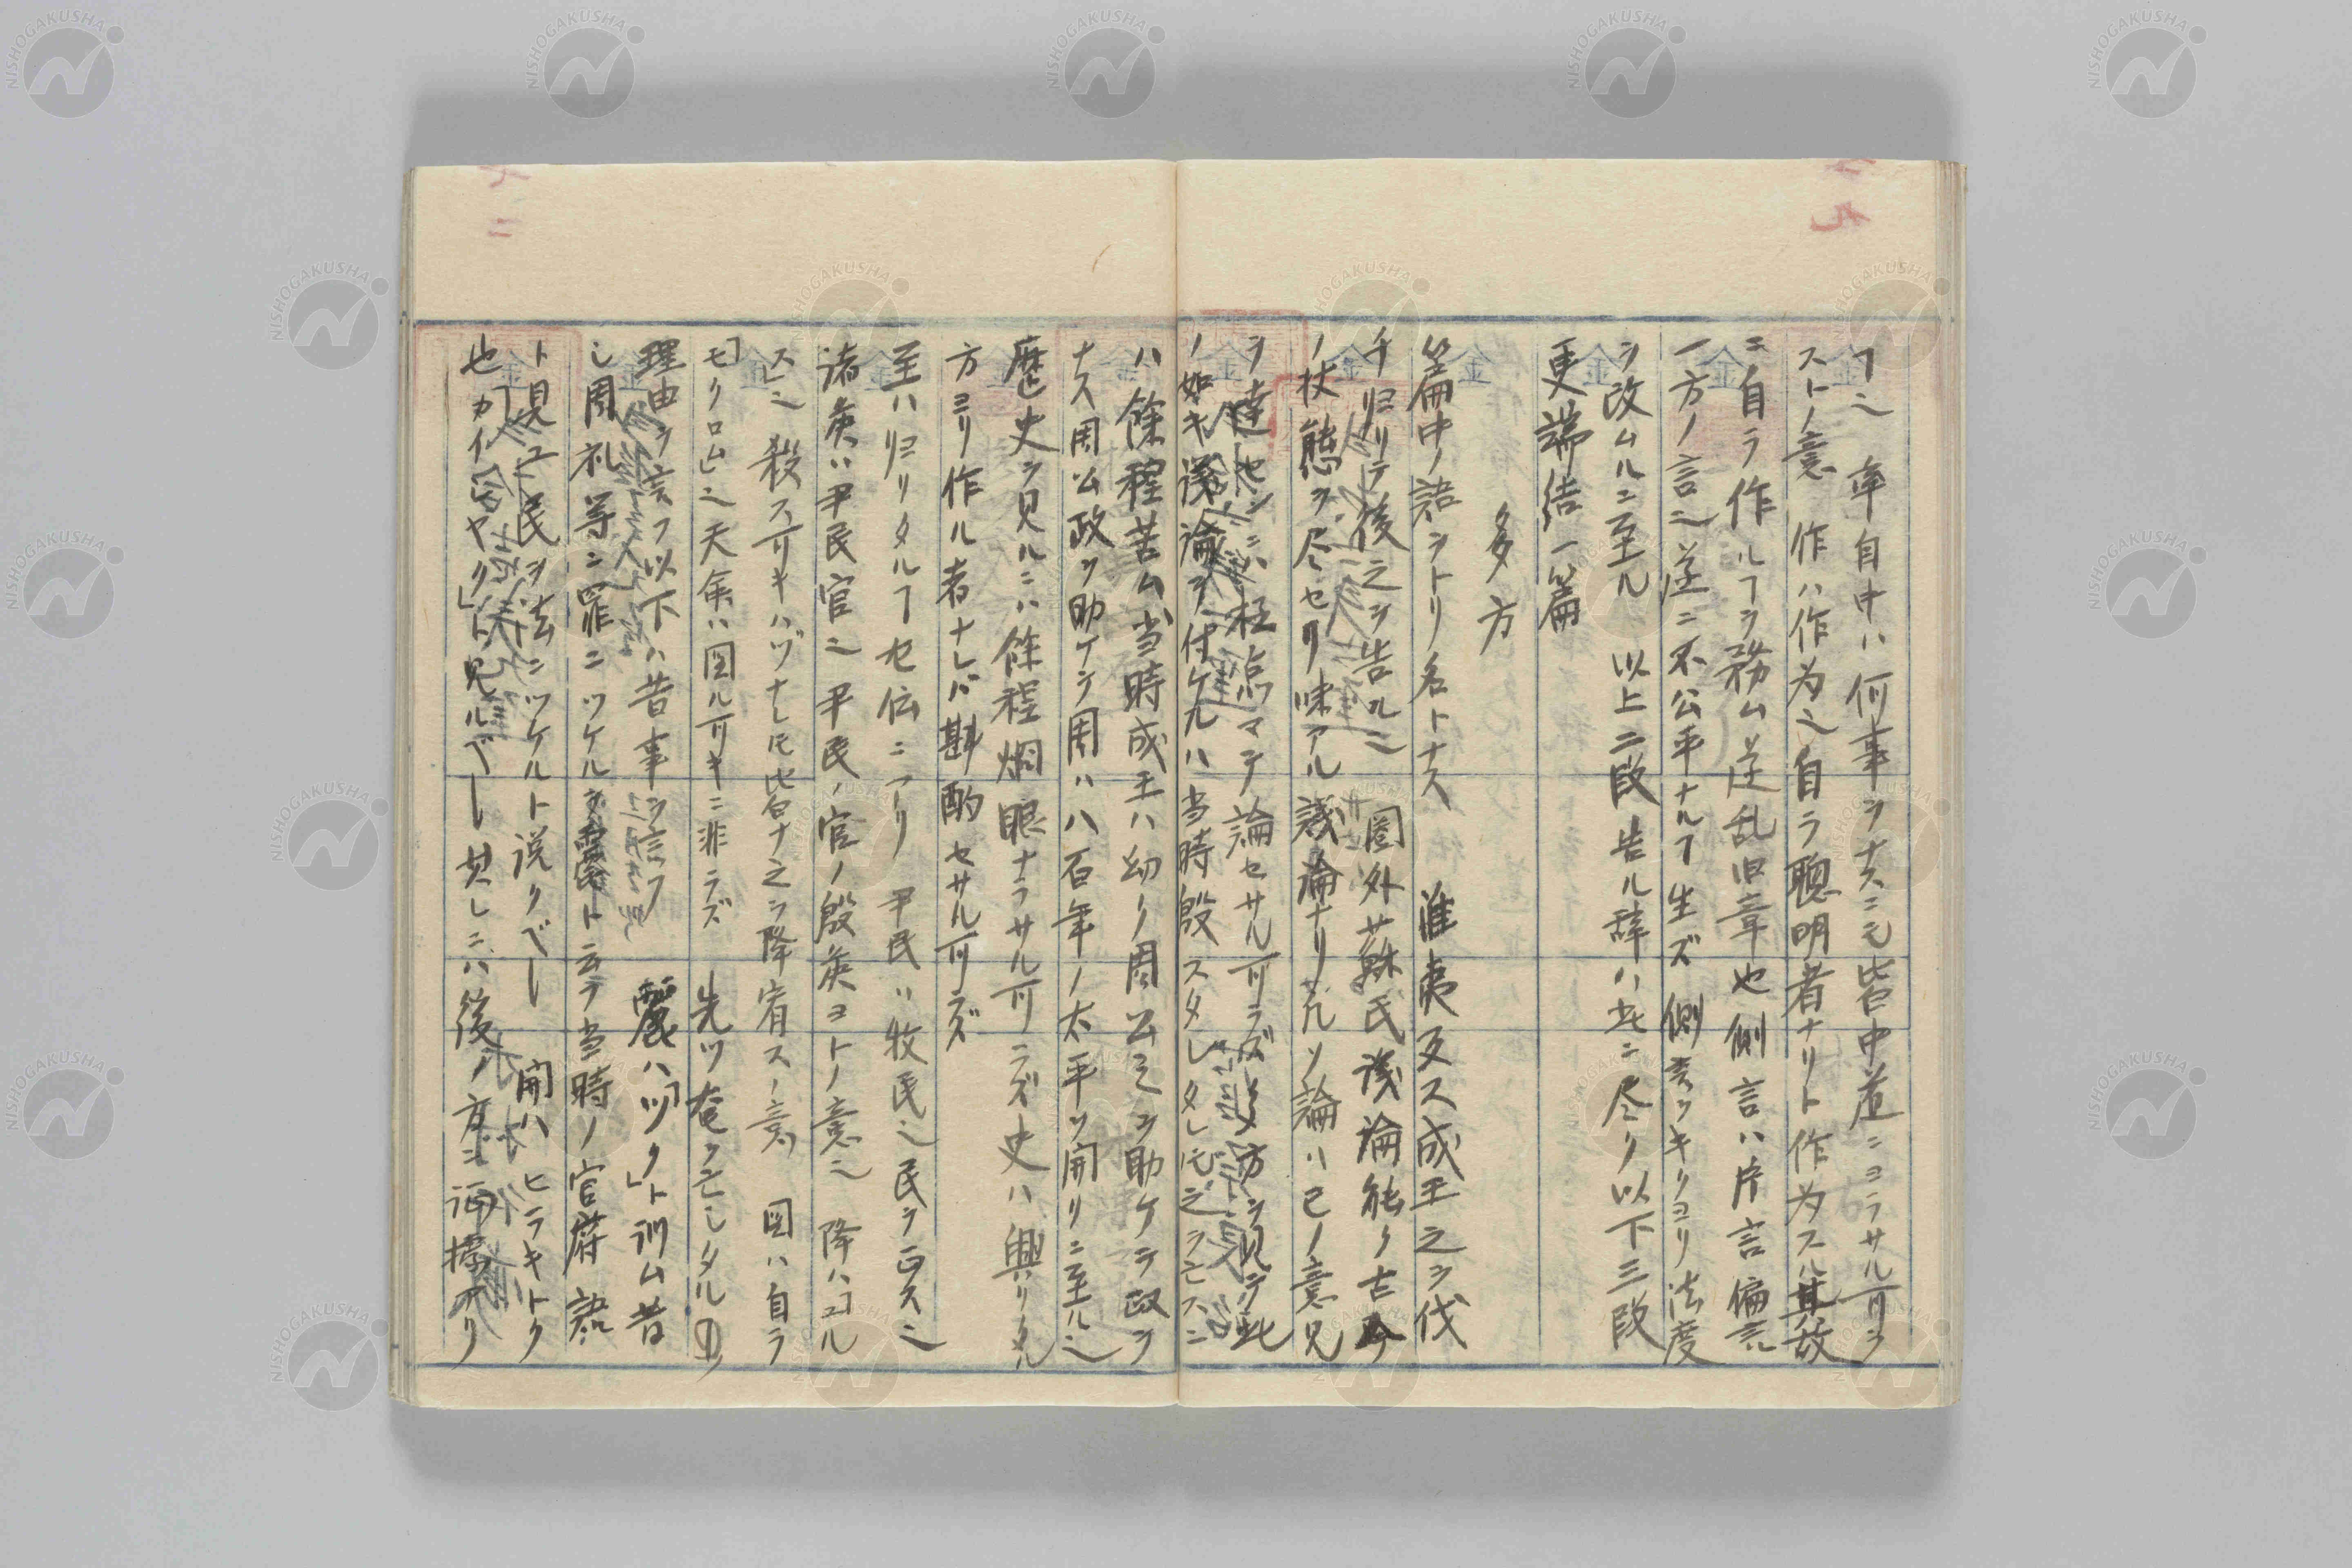 フ〆 率自中ハ何事ヲナスニモ皆中道ニヨラサル可ラ
ストノ意 作ハ作為〆自ラ聰明者ナリト作為スル其故
ニ自ラ作ルフヲ務ム逆乱旧章也側言ハ片言偏言
一方ノ言〆逆ニ不公平ナルフ生ズ 側言ツキリヨリ法度
ヲ改ムルニ至ル 以上二段告ル辞ハ此ニ尽リ以下三段
更端結一篇
多方
篇中ノ語ヲトリ名トナス 淮夷又ス成王之ヲ伐
チ歸リテ後之ヲ告ル〆 圏外蘇氏議論能ク古今
ノ状態ヲ尽セリ味アル議論ナリ凡ソ論ハ己ノ意見
ヲ達セシニハ極点マテ論セサル可ラズ 方ヲ見テ此
ノ如キ議論ヲ付ケルハ当時殷スタレタレモ之ヲ亡スニ
ハ餘程苦ム当時成王ハ幼ク周公之ヲ助ケテ政ヲ
ナス周公政ヲ助ケシ周ハ八百年ノ太平ヲ開クニ至ル〆
歴史ヲ見ルニハ餘程炯眼ナラサル可ラズ史ハ興リタル
方ヨリ作ル者ナレバ斟酌セサル可ラズ
至ハ歸リタルフ左伝ニアリ 尹民ハ牧民〆民ヲ正ス〆
諸侯ハ尹民官〆尹民ノ官ノ殷侯コトノ意〆 降ハ「コル
ス」〆殺ス可キハヅナレ𪜈皆ナ之ヲ降宥スノ意 図ハ自ラ
「モクロム」〆天命ハ図ル可キニ非ラズ 先ツ奄ヲ亡シタルノ
理由ヲ言フ以下ハ昔事ヲ言フ 麗ハ「ツク」ト訓ム昔
し周礼等ニ罪ニツケル 麗ト云フ当時ノ官府語
ト見ユ民ヲ法ニツケルト説クべし 開ハヒラキトク
也「カイヤク」ト見ルべし 其しニハ後ノ方ニ証拠アリ